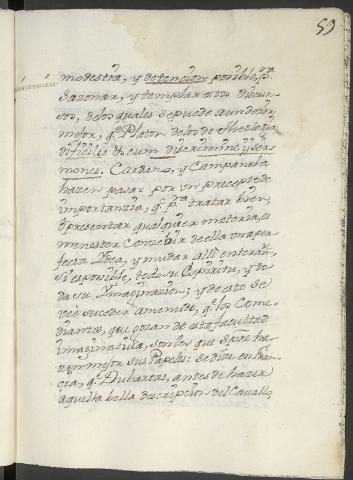 59
modestia, y detencion posible, pª
sazonar, y templar estos discur-
sos, delos quales sepuede aun decir
mejor, qᵉ Platon delos de Theologia,
dificiles cum discrimine, y ser-
mones. Cardano, y Campanela
hazen pasar por un precepto de
importanzia, qᵉ pª tratar bien,
o presentar qualquier materia, es
menester Conzebir de ella una per-
fecta Idea, y mudar alli enteramᵗᵉ,
si es posible, todo su Espiritu, y to-
da su Imaginazion; y de esto se
vee suceder amenudo, qᵉ los Come-
diantes, que gozan de esta facultad
imaginativa, son los que spre ha-
zen mejor sus Papeles: se dize en Fran-
cia, qᵉ Dubartas, antes de hazer
aquella bella descripcion del Cavallo,